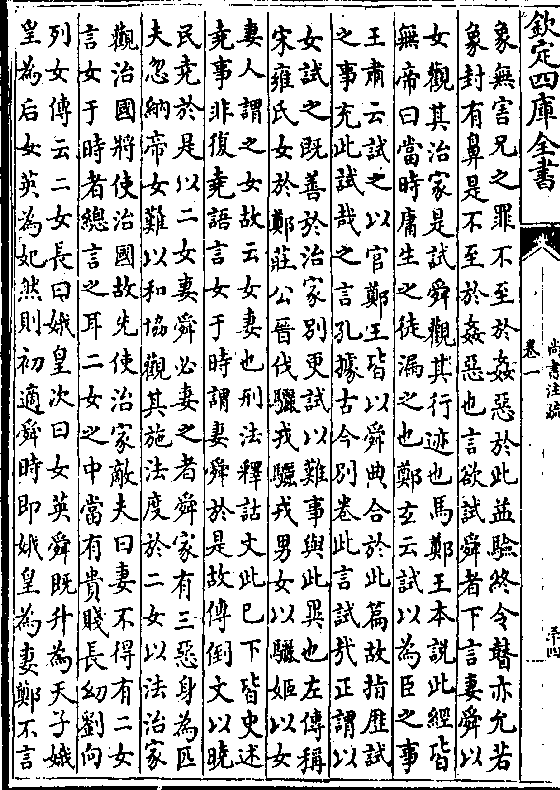 欽定四庫全書
尚書注疏
卷一
象無害兄之罪不至於姦惡於此益驗終令瞽亦允若
象封有鼻是不至於姦惡也言欲試舜者下言妻舜以
女觀其治家是試舜觀其行迹也馬鄭王本說此經皆
無帝曰當時庸生之徒漏之也鄭𤣥云試以為臣之事
王肅云試之以官鄭王皆以舜典合於此篇故指歷試
之事充此試哉之言孔據古今別卷此言試哉正謂以
女試之既善於治家別更試以難事與此異也左傳稱
宋雍氏女於鄭莊公晉伐驪戎驪戎男女以驪姬以女
妻人謂之女故云女妻也刑法釋詁文此已下皆史述
堯事非復堯語言女于時謂妻舜於是故傳倒文以曉
民堯於是以二女妻舜必妻之者舜家有三惡身為匹
夫忽納帝女難以和協觀其施法度於二女以法治家
觀治國將使治國故先使治家敵夫曰妻不得有二女
言女于時者總言之耳二女之中當有貴賤長幼劉向
列女傳云二女長曰娥皇次曰女英舜既升為天子娥
皇為后女英為妃然則初適舜時即娥皇為妻鄭不言